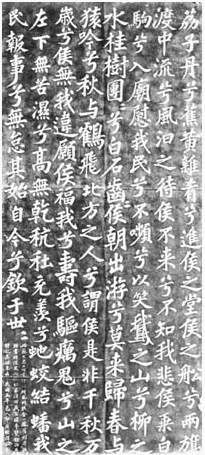 荔子丹兮蕉黄雜肴兮進侯之堂侯之船兮兩旗
渡中流兮風泊之待侯不來兮不知我悲侯乘白
駒兮入廟慰我民兮不嚬兮以笑鵞之山兮柳之
水桂樹團〻兮白石齒〻侯朝出游兮莫來歸春与
猿吟兮秋与鶴飛北方之人兮謂侯是非千秋万
歲兮侯無我違願侯福我兮壽我驅癘鬼兮山之
左下無苦濕兮高無乾秔稌充羨兮虵蛟結蟠我
民報事兮無怠其始自今兮欽于世〻